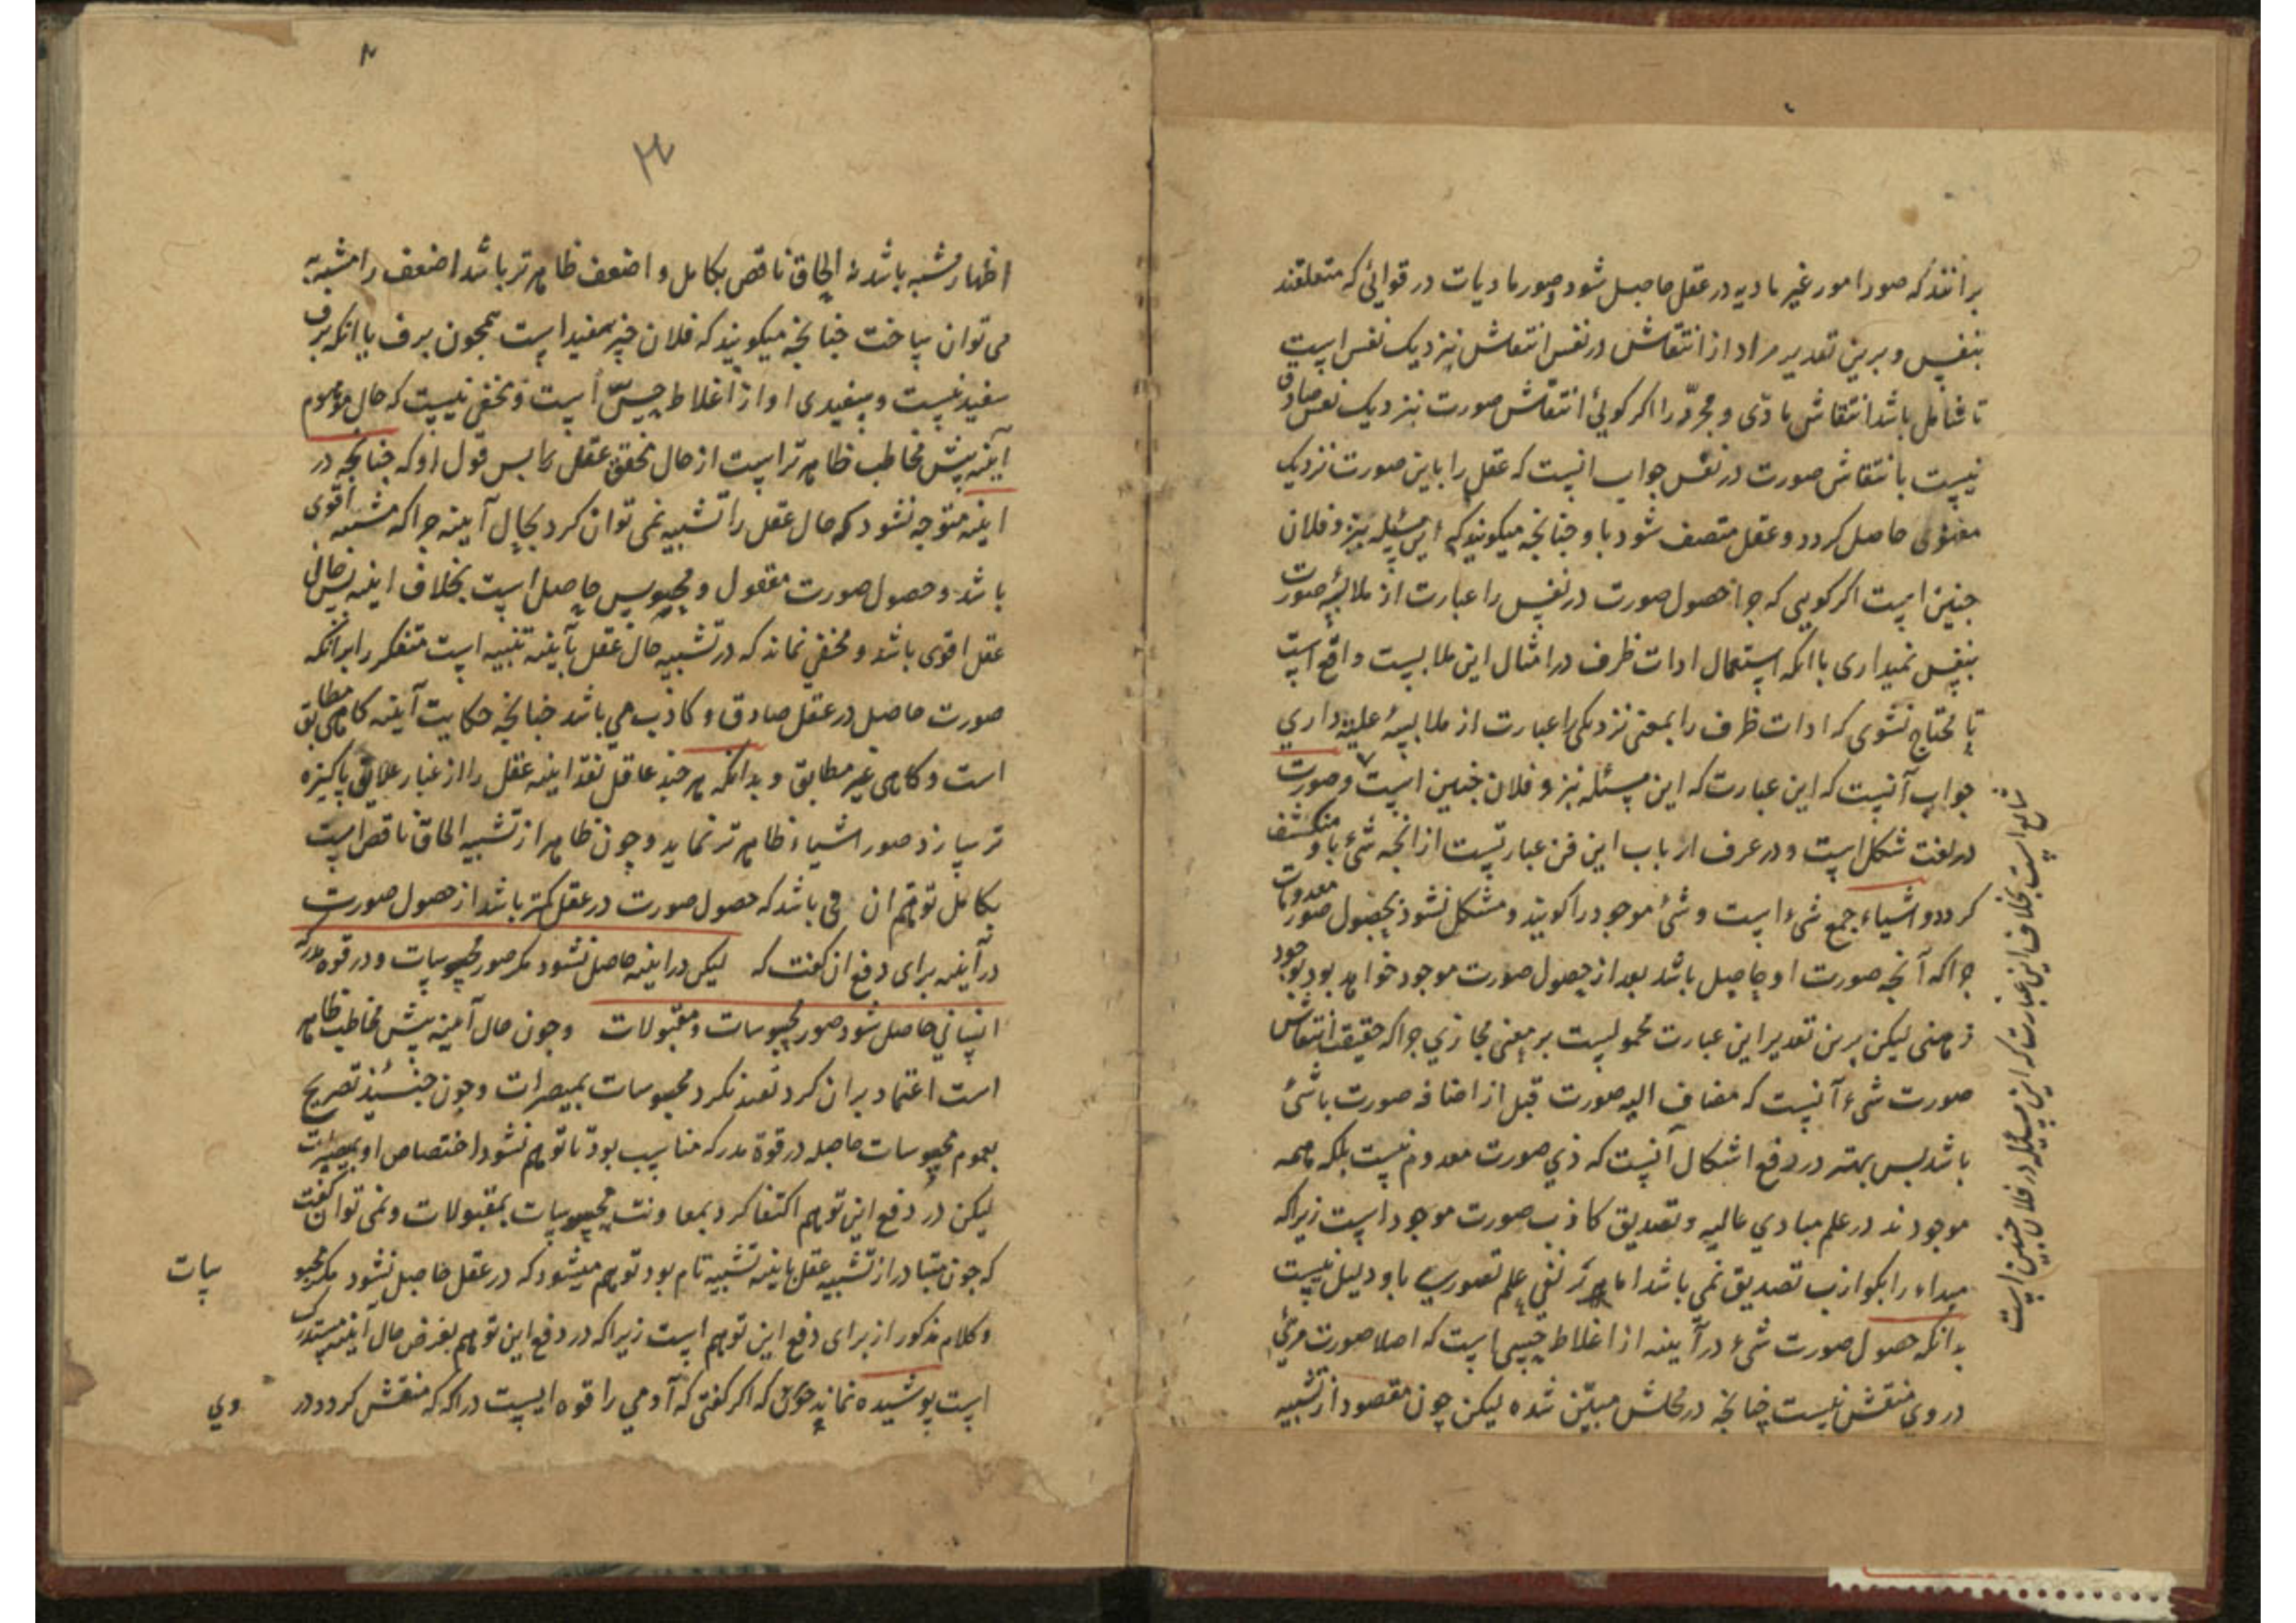 برانند که صور امور غیر مادیه در عقل حاصل شود و صور مادیات در قوائی که متعلقند
بنفس و برین تقدیر مراد از انتقاش در نفس انتقاش نزدیک نفس است
تا شامل باشد انتقاش مادّی و مجرّد را اکر کوئی انتقاش صورت نزدیک نفس صادق
نیست بانتقاش صورت در نفس جواب انست که عقل را باین صورت نزدیک
معنوی حاصل کردد و عقل متصف شود باو جنانجه میکویند که این مسئله نزد فلان
جنین است اکر کویی که جرا حصول صورت در نفس را عبارت از ملابسهٔ صورت
بنفس نمیداری باانکه استعمال ادات ظرف در امثال این ملابست واقع است
تا محتاج نشوی که ادات ظرف را بمعنی نزدیکی را عبارت از ملابسهٔ علیه داری
جواب آنست که این عبارت که این مسئله نزد فلان جنین است و صورت
در لغت شکل است و در عرف ارباب این فن عبارتست از انجه شئ باو منکشف
کردد و اشیاء جمع شیء است و شئ موجود را کویند و مشکل نشود بحصول صور معدومات
جراکه آنجه صورت او حاصل باشد بعد از حصول صورت موجود خواهد بود بوجود
ذهنی لیکن برین تقدیر این عبارت محمولست بر معنی مجازی جراکه حقیقت انتقاش
صورت شیء آنست که مضاف الیه صورت قبل از اضافه صورت باشئ
باشد بس بهتر در دفع اشکال آنست که ذی صورت معدوم نیست بلکه همه
موجودند در علم مبادی عالیه و تصدیق کاذب صورت موجود است زیراکه
مبداء را بکواذب تصدیق نمی باشد اما بر نفی علم تصوری باو دلیل نیست
بدانکه حصول صورت شیء در آینه از اغلاط حسّی است که اصلا صورت مرئی
در وی منقش نیست جنانجه در محلش مبیّن شده لیکن جون مقصود از تشبیه
شایع است بخلاف این عبارت که این مسئله در فلان جنین است
۳
اظهار مشبه باشد نه الحاق ناقص بکامل و اضعف ظاهرتر باشد اضعف را مشبه به
می توان ساخت جنانجه میکویند که فلان جیز سفید است همجون برف باانکه برف
سفید نیست و سفیدی او از اغلاط حسّ است و مخفی نیست که حال موهوم
آینه بیش مخاطب ظاهرتر است از حال محقق عقل بس قول او که جنانجه در
اینه متوجه نشود که حال عقل را تشبیه نمی توان کرد بحال آینه جراکه مشبه به اقوی
باشد و حصول صورت معقول و محسوس حاصل است بخلاف اینه بس حال
عقل اقوی باشد و مخفی نماند که در تشبیه حال عقل بآینه تنبیه است متفکر را برانکه
صورت حاصل در عقل صادق و کاذب می باشد جنانجه حکایت آینه کاهی مطابق
است و کاهی غیر مطابق و بدانکه هرجند عاقل نقد اینه عقل را از غبار علایق باکیزه
تر سازد صور اشیاء ظاهرتر نماید و جون ظاهر از تشبیه الحاق ناقص است
بکامل توهم ان می باشد که حصول صورت در عقل کمتر باشد از حصول صورت
در آینه برای دفع ان کفت که لیکن در اینه حاصل نشود مکر صور محسوسات و در قوه مدرکه
انسانی حاصل شود صور محسوسات و معقولات و جون حال آمینه بیش مخاطب ظاهر
است اعتماد بران کرد تقیید نکرد محسوسات بمبصرات و جون حینئذ تصریح
بعموم محسوسات حاصله در قوة مدرکه مناسب بود تا توهم نشود اختصاص او بمبصرات
لیکن در دفع این توهم اکتفا کرد بمعاونت محسوسات بمعقولات و نمی توان کفت
که جون متبادر از تشبیه عقل باینه تشبیه تام بود توهم میشود که در عقل حاصل نشود مکر محسو
سات
و کلام مذکور از برای دفع این توهم است زیراکه در دفع این توهم بغرض حال اینه مستدرک
است بوشیده نماند که اکر کفتی که آدمی را قوه ایست دراکه که منقش کردد در
وی